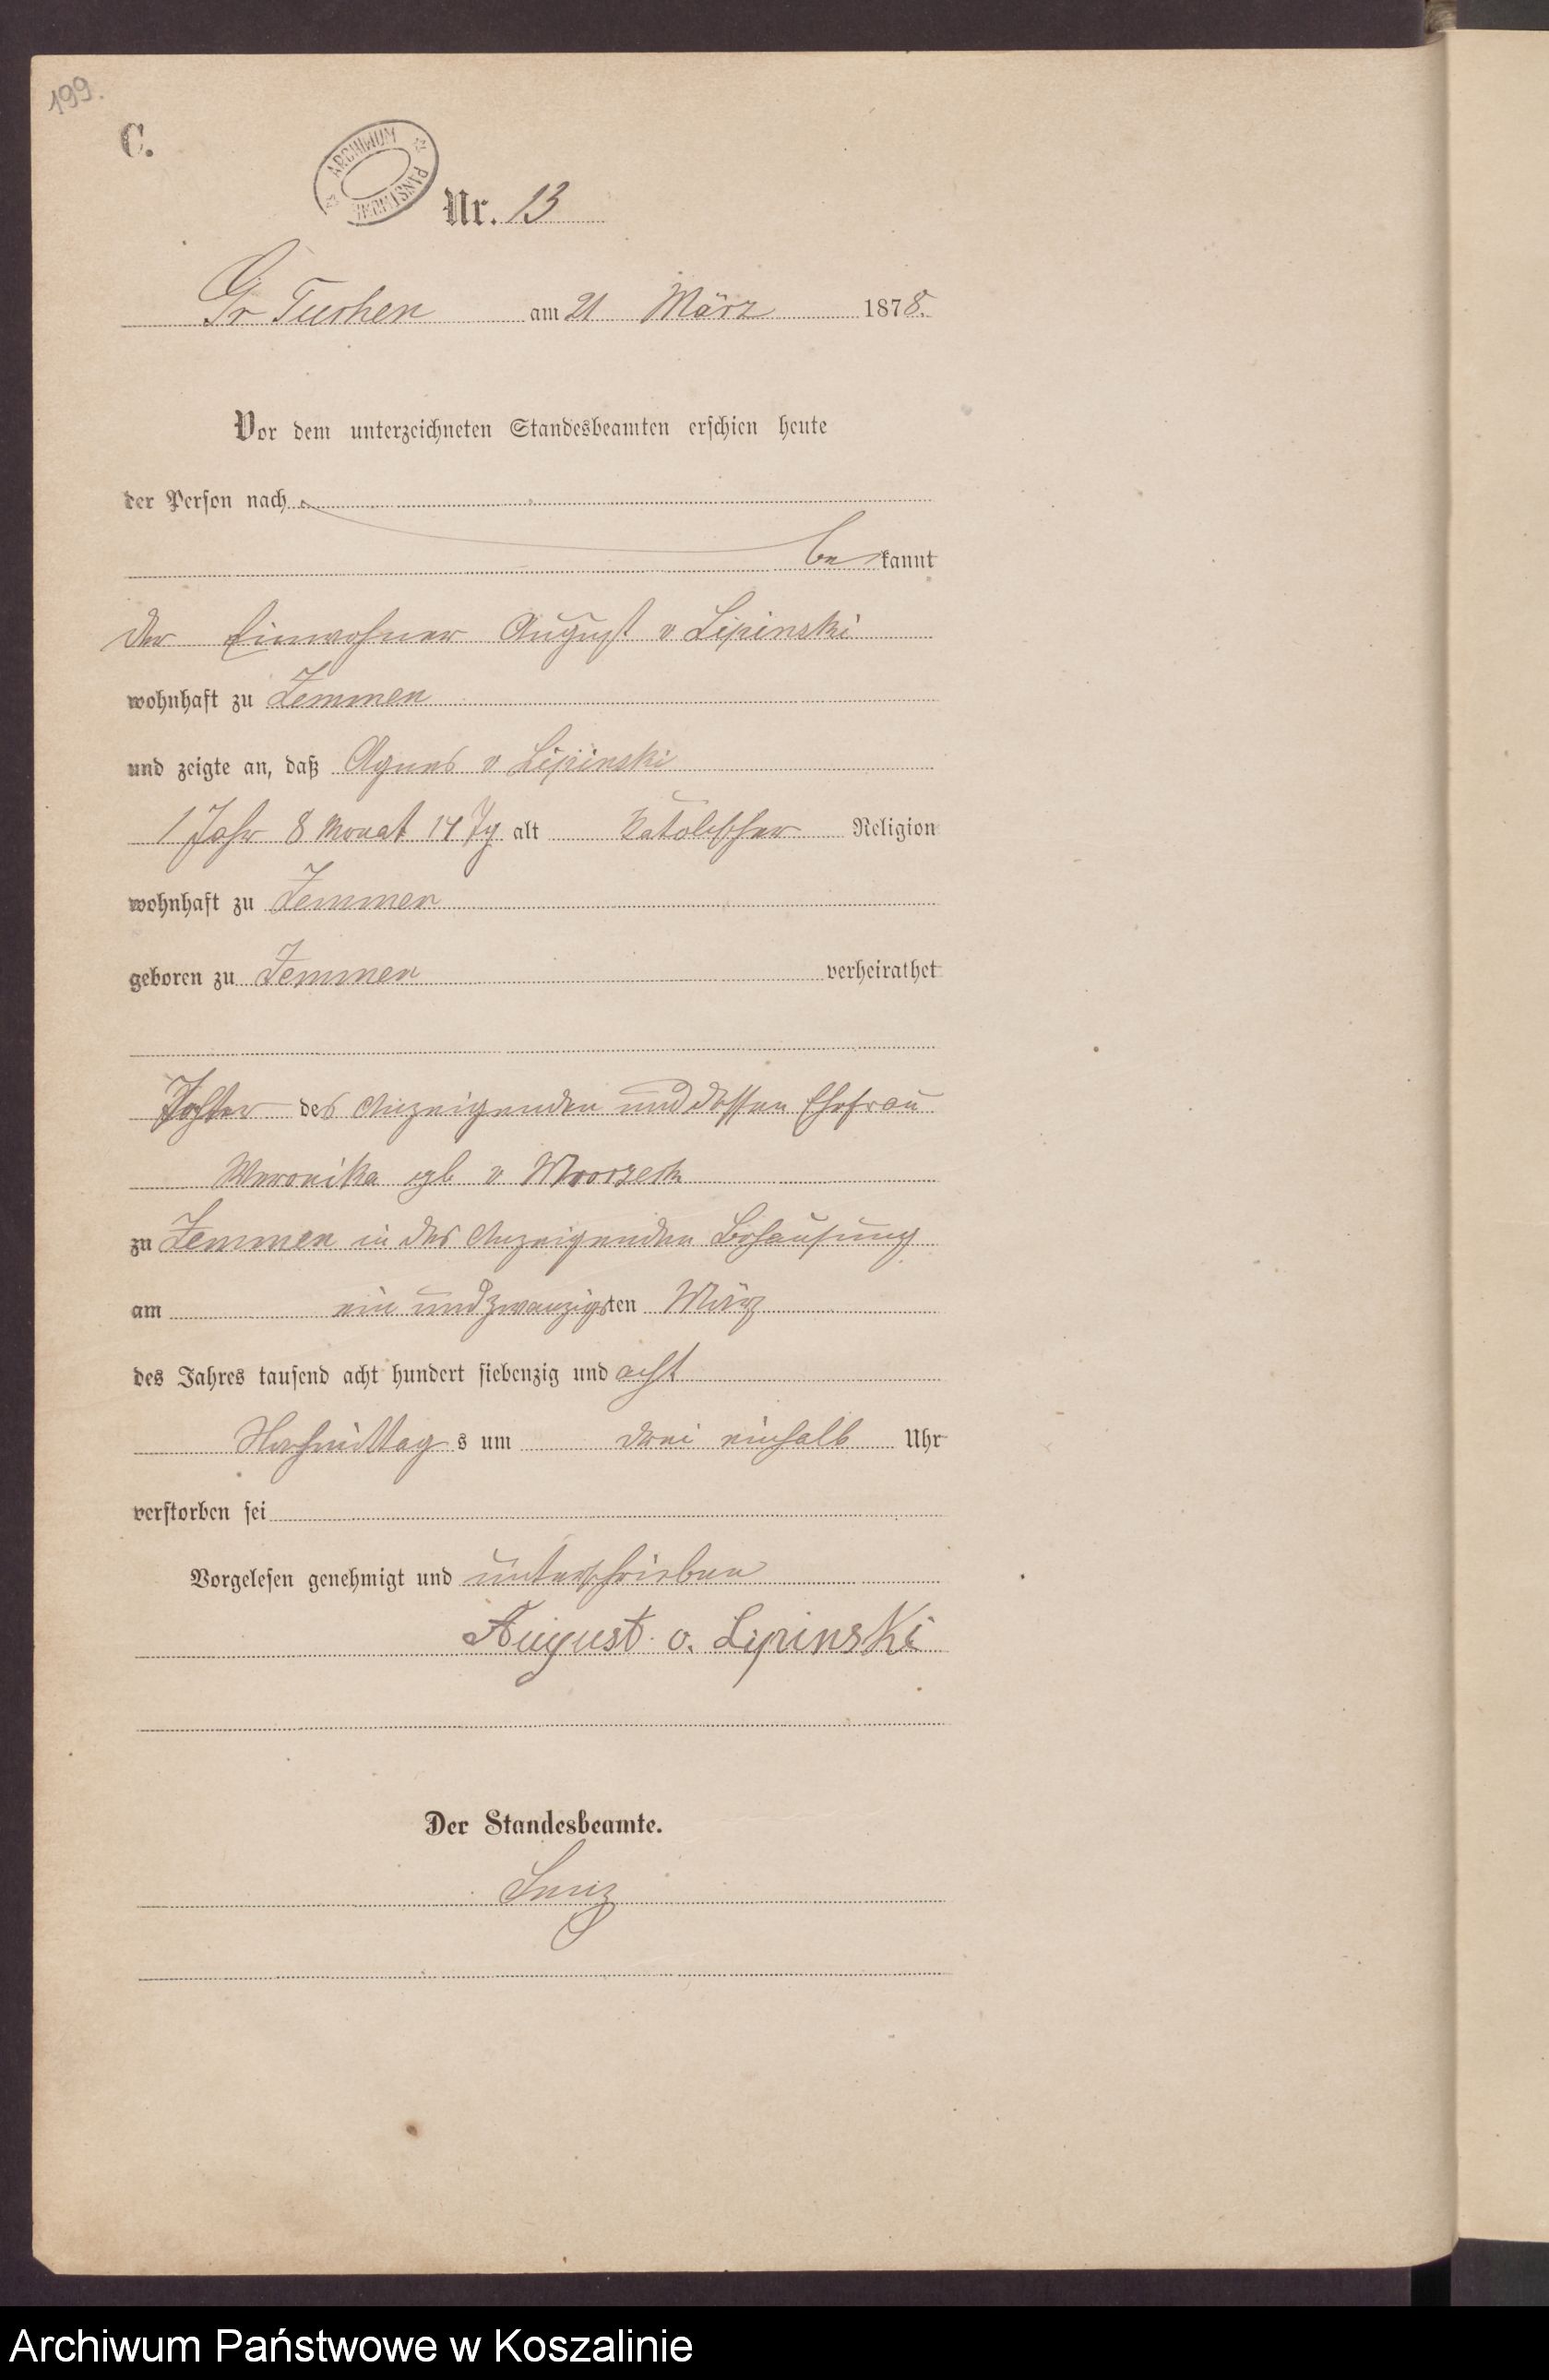 199.
C.
ARCHIWUM PAŃSTWOWE
Nr. 13
Gr Tuchen am 21 März 1878.
Vor dem unterzeichneten Standesbeamten erschien heute
der Person nach
be kannt
der Einwohner August v Lipinski
wohnhaft zu Zemmen
und zeigte an, daß Agnes v Lipinski
1 Jahr 8 Monat 14 Tg alt katolischer Religion
wohnhaft zu Zemmen
geboren zu Zemmen verheirathet
Tochter des Anzeigenden und dessen Ehefrau
Weronika gb v
zu Zemmen in des Anzeigenden Behausung
am ein und zwanzigsten März
des Jahres tausend acht hundert siebenzig und acht
Nachmittag s um drei einhalb Uhr
verstorben sei
Vorgelesen genehmigt und unterschrieben
August v. Lipinski
Der Standesbeamte.
Archiwum Państwowe w Koszalinie